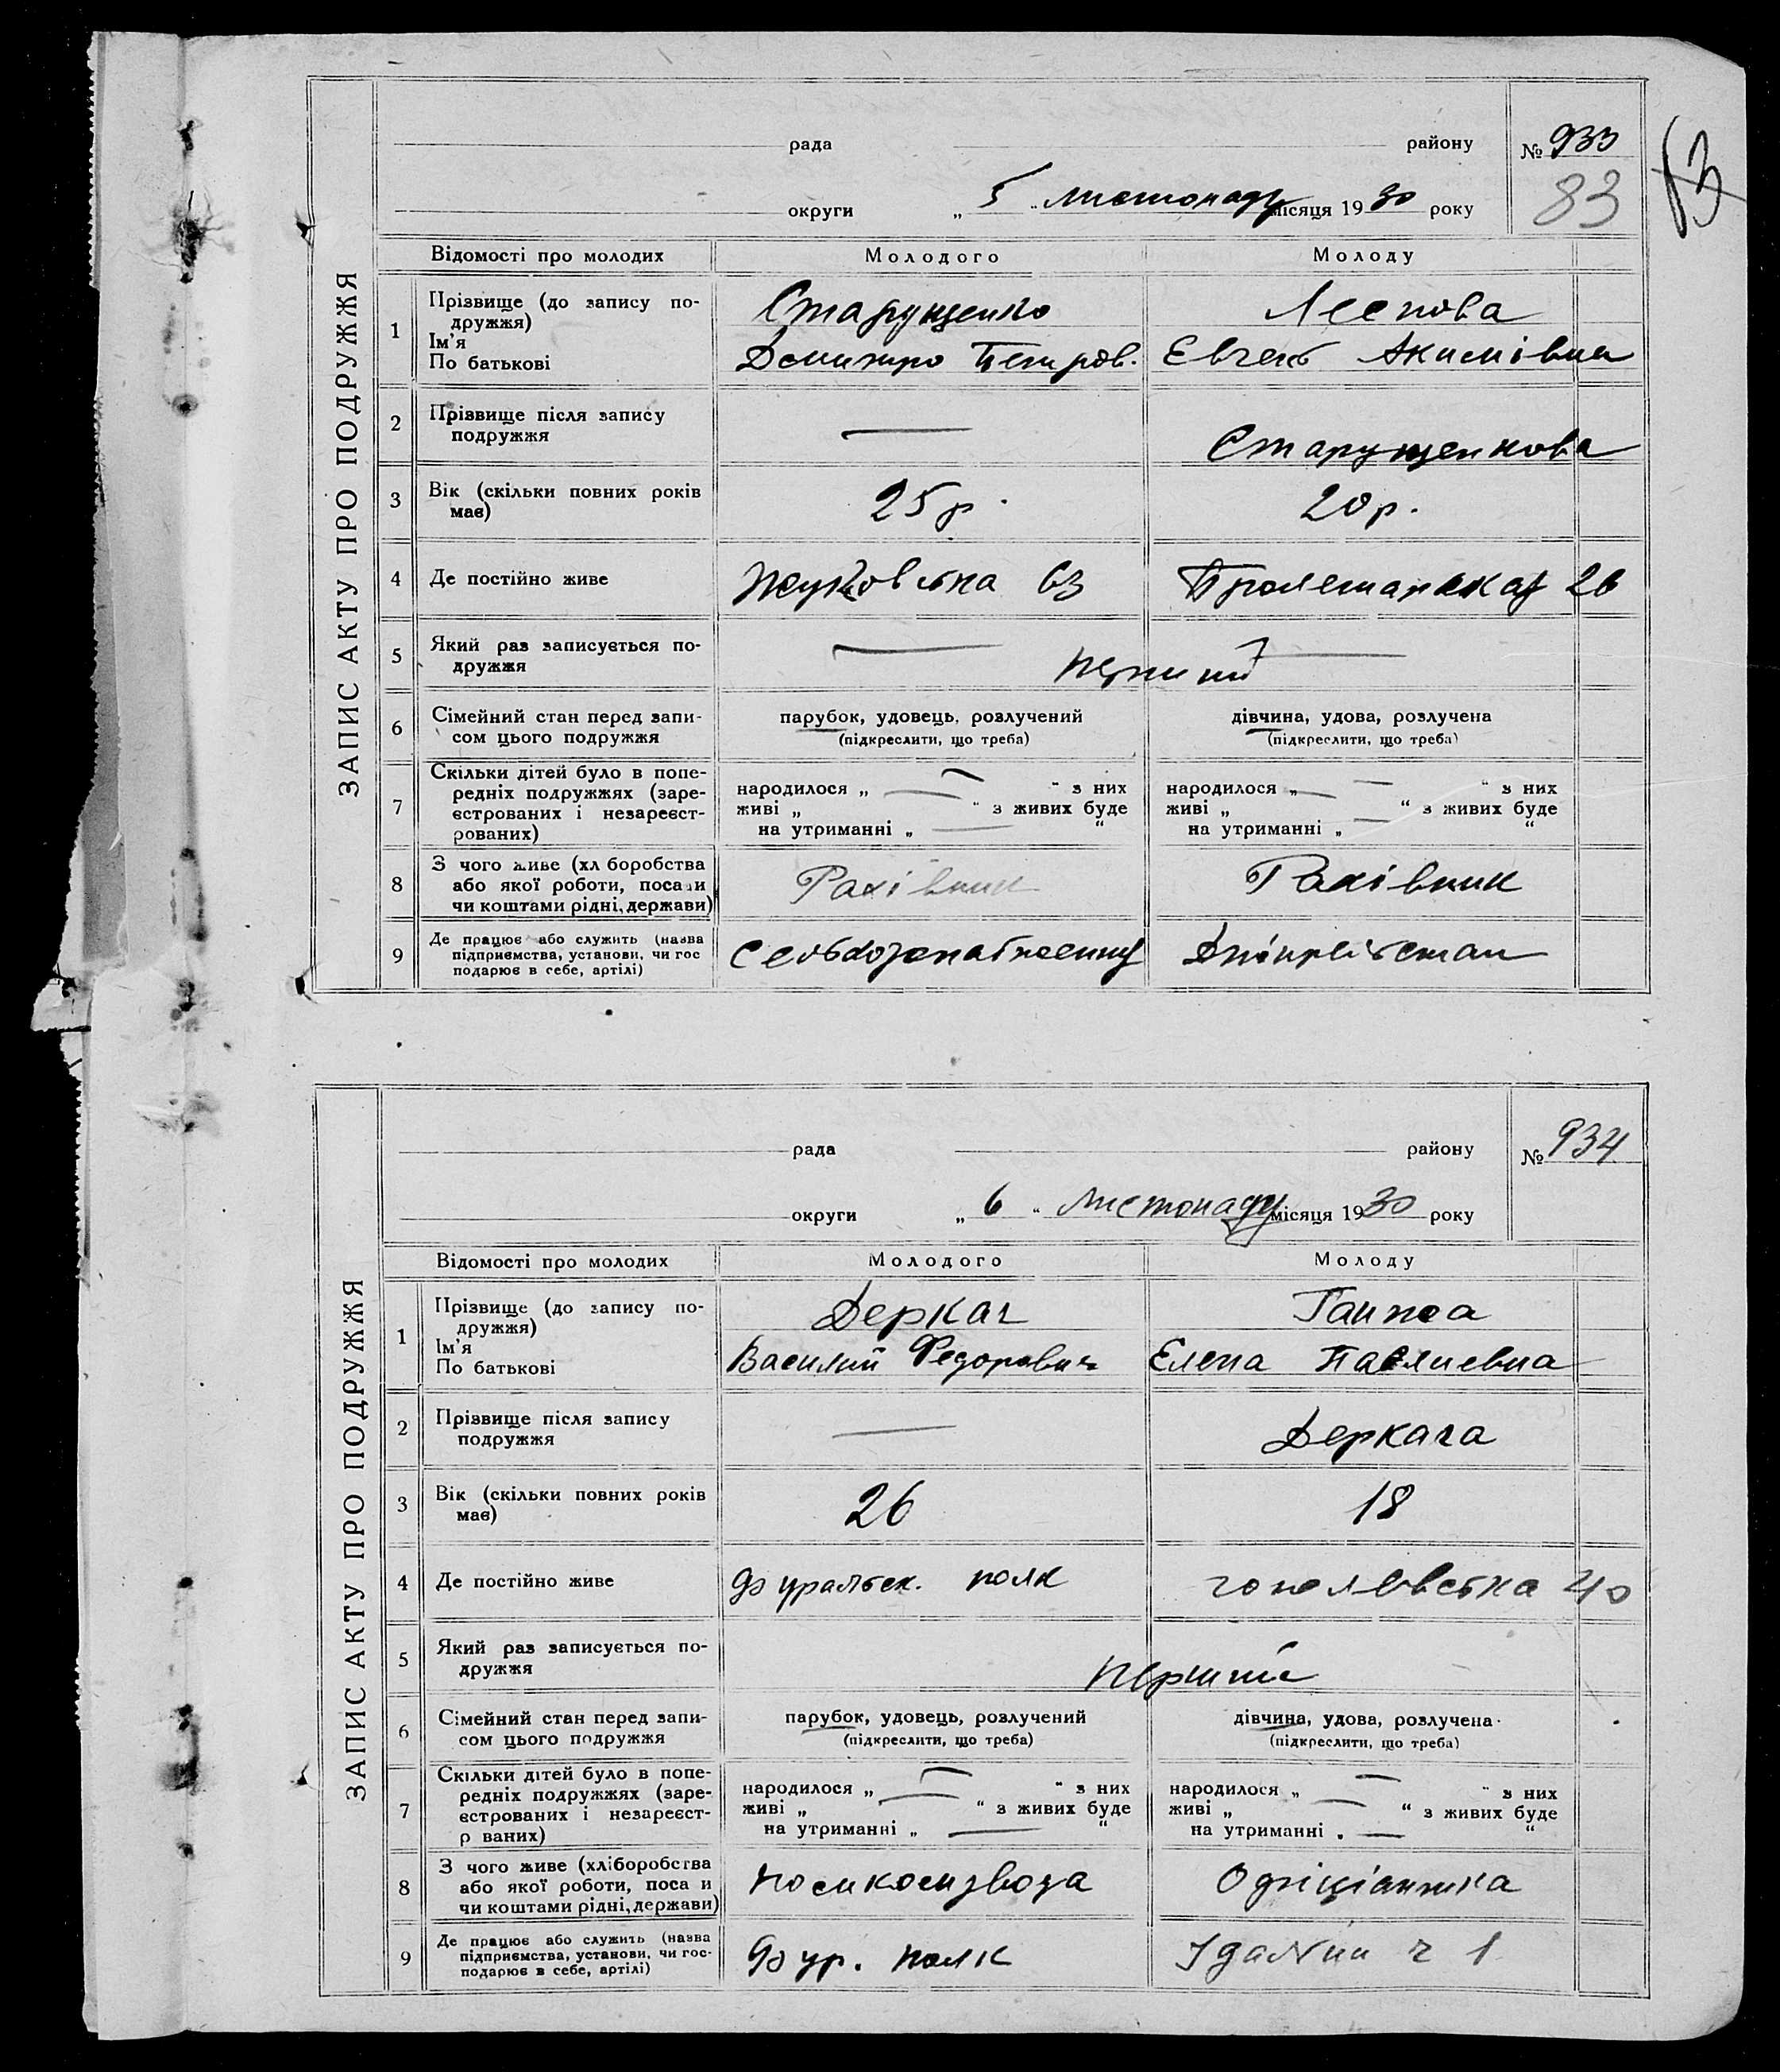 ЗАПИС АКТУ ПРО ПОДРУЖЖЯ
рада району № 933
83
округи „ 5 " листопаду місяця 1930 року
Відомості про молодих Молодого Молоду
1 Прізвище (до запису по-
дружжя)
Ім'я
По батькові
Старущенко
Демитро Петров.
Леєпова
Акимівна
2 Прізвище після запису
подружжя
—
Старущенкова
3 Вік (скільки повних років
має)
25 р.
20 р.
4 Де постійно живе
63
Пролетарська 26
5 Який раз записується по-
дружжя
перший
6 Сімейний стан перед запи-
сом цього подружжя
парубок, удовець, розлучений
(підкреслити, що треба)
дівчина, удова, розлучена
(підкреслити, що треба)
7 Скільки дітей було в попе-
редніх подружжях (заре-
єстрованих і незареєст-
рованих)
народилося „ — " з них
живі „ — " з живих буде
на утриманні „ — "
народилося „ — " з них
живі „ — " з живих буде
на утриманні „ — "
8 З чого живе (хл боробства
або якої роботи, посади
чи коштами рідні, держави)
Рахівник
Рахівник
9 Де працює або служить (назва
підприємства, установи, чи гос
подарює в себе, артілі)
ЗАПИС АКТУ ПРО ПОДРУЖЖЯ
рада району № 934
округи „ 6 " листопаду місяця 1930 року
Відомості про молодих Молодого Молоду
1 Прізвище (до запису по-
дружжя)
Ім'я
По батькові
Деркач
Василий Федорович
Елена
2 Прізвище після запису
подружжя
—
Деркача
3 Вік (скільки повних років
має)
26
18
4 Де постійно живе
90 уральск. полк
40
5 Який раз записується по-
дружжя
перший
6 Сімейний стан перед запи-
сом цього подружжя
парубок, удовець, розлучений
(підкреслити, що треба)
дівчина, удова, розлучена
(підкреслити, що треба)
7 Скільки дітей було в попе-
редніх подружжях (заре-
єстрованих і незареєст-
р ваних)
народилося „ — " з них
живі „ — " з живих буде
на утриманні „ — "
народилося „ — " з них
живі „ — " з живих буде
на утриманні „ — "
8 З чого живе (хліборобства
або якої роботи, поса и
чи коштами рідні, держави)
Помкомзвода
Официянтка
9 Де працює або служить (назва
підприємства, установи, чи гос-
подарює в себе, артілі)
90 ур. полк
Ідальни ч 1